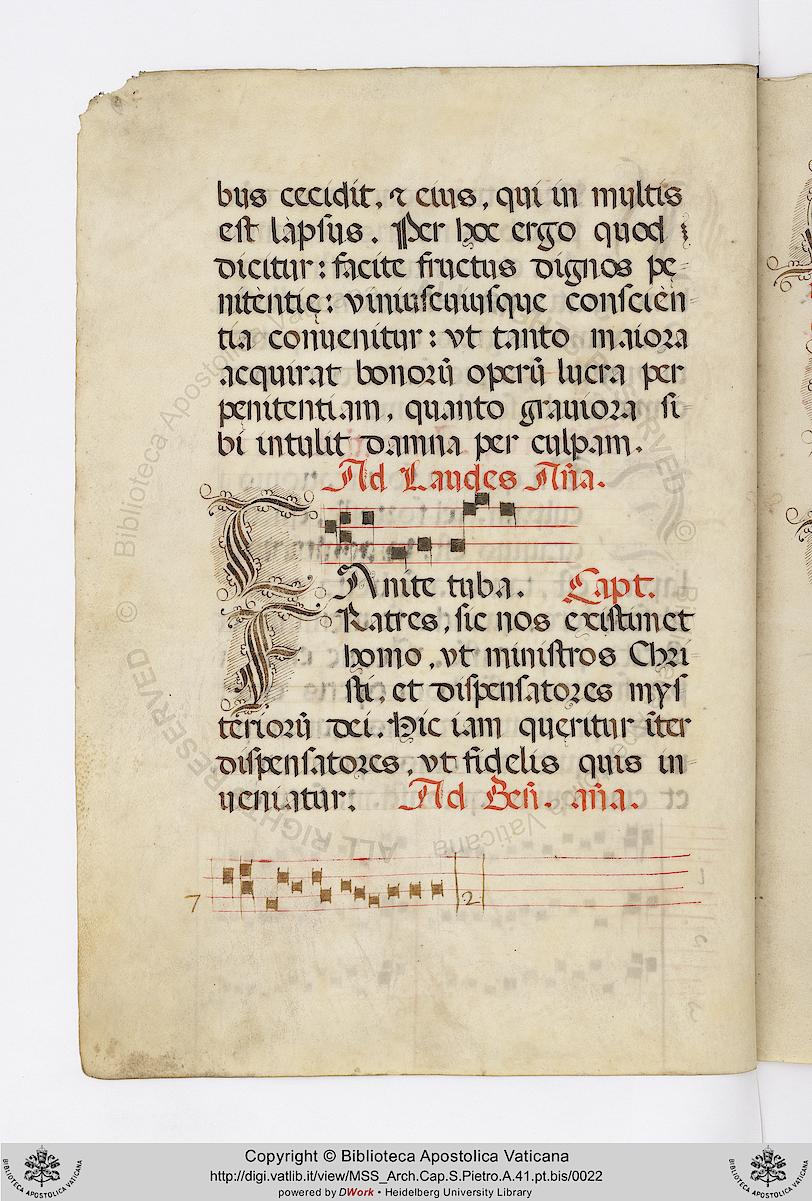 bus cecidit, ⁊ eius, qui in multis
est làpsus. Per hoc ergo quod
dicitur: facite fructus dignos pę-
nitèntię: vniuscuiusque conscièn
tia conuenitur: vt tanto maiora
acquirat bonorũ operũ lucra per
penitentiam, quanto grauiora si
bi intulit damna per culpam.
Ad Laudes Añа.
CAnite tuba. Capt.
FRatres, sic nos existimet
homo, vt ministros Chri
sti, et dispensatores mys
tèriorũ dei. Hic iam queritur ĩter
dispensatores, vt fidelis quis in
ueniatur. Ad Beñ. añа.
7
2
Copyright © Biblioteca Apostolica Vaticana
http://digi.vatlib.it/view/MSS_Arch.Cap.S.Pietro.A.41.pt.bis/0022
powered by DWork • Heidelberg University Library